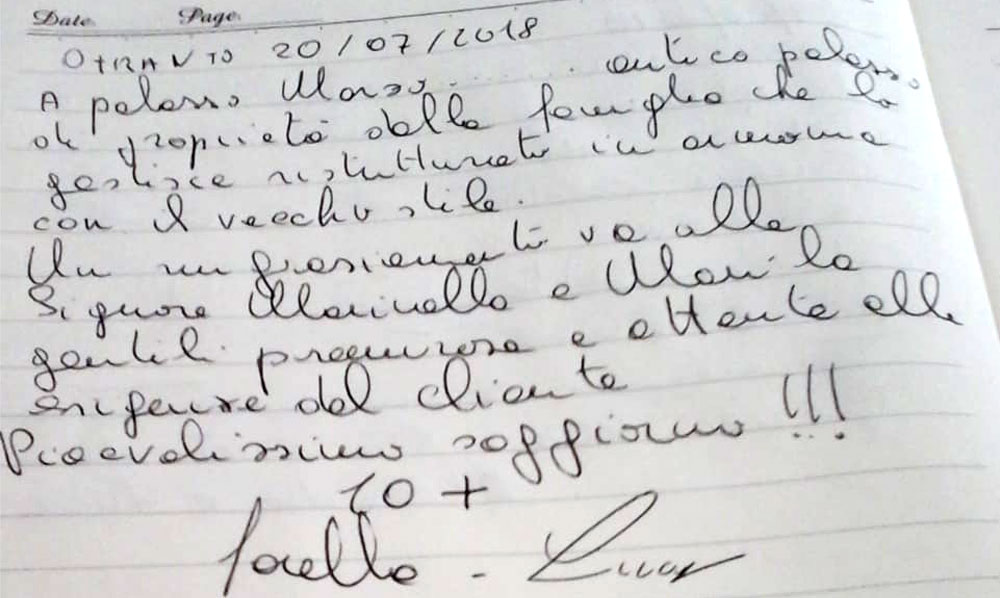 Date Page
OTRANTO 20/07/2018
A palazzo Marzo....... antico palazzo
di proprietà della famiglia che lo
gestisce ristrutturato in armonia
con il vecchio stile.
Un ringraziamento va alla
Signora Marinella e Marila
gentili premurose e attente alle
esigenze del cliente
Piacevolissimo soggiorno !!!
10 +